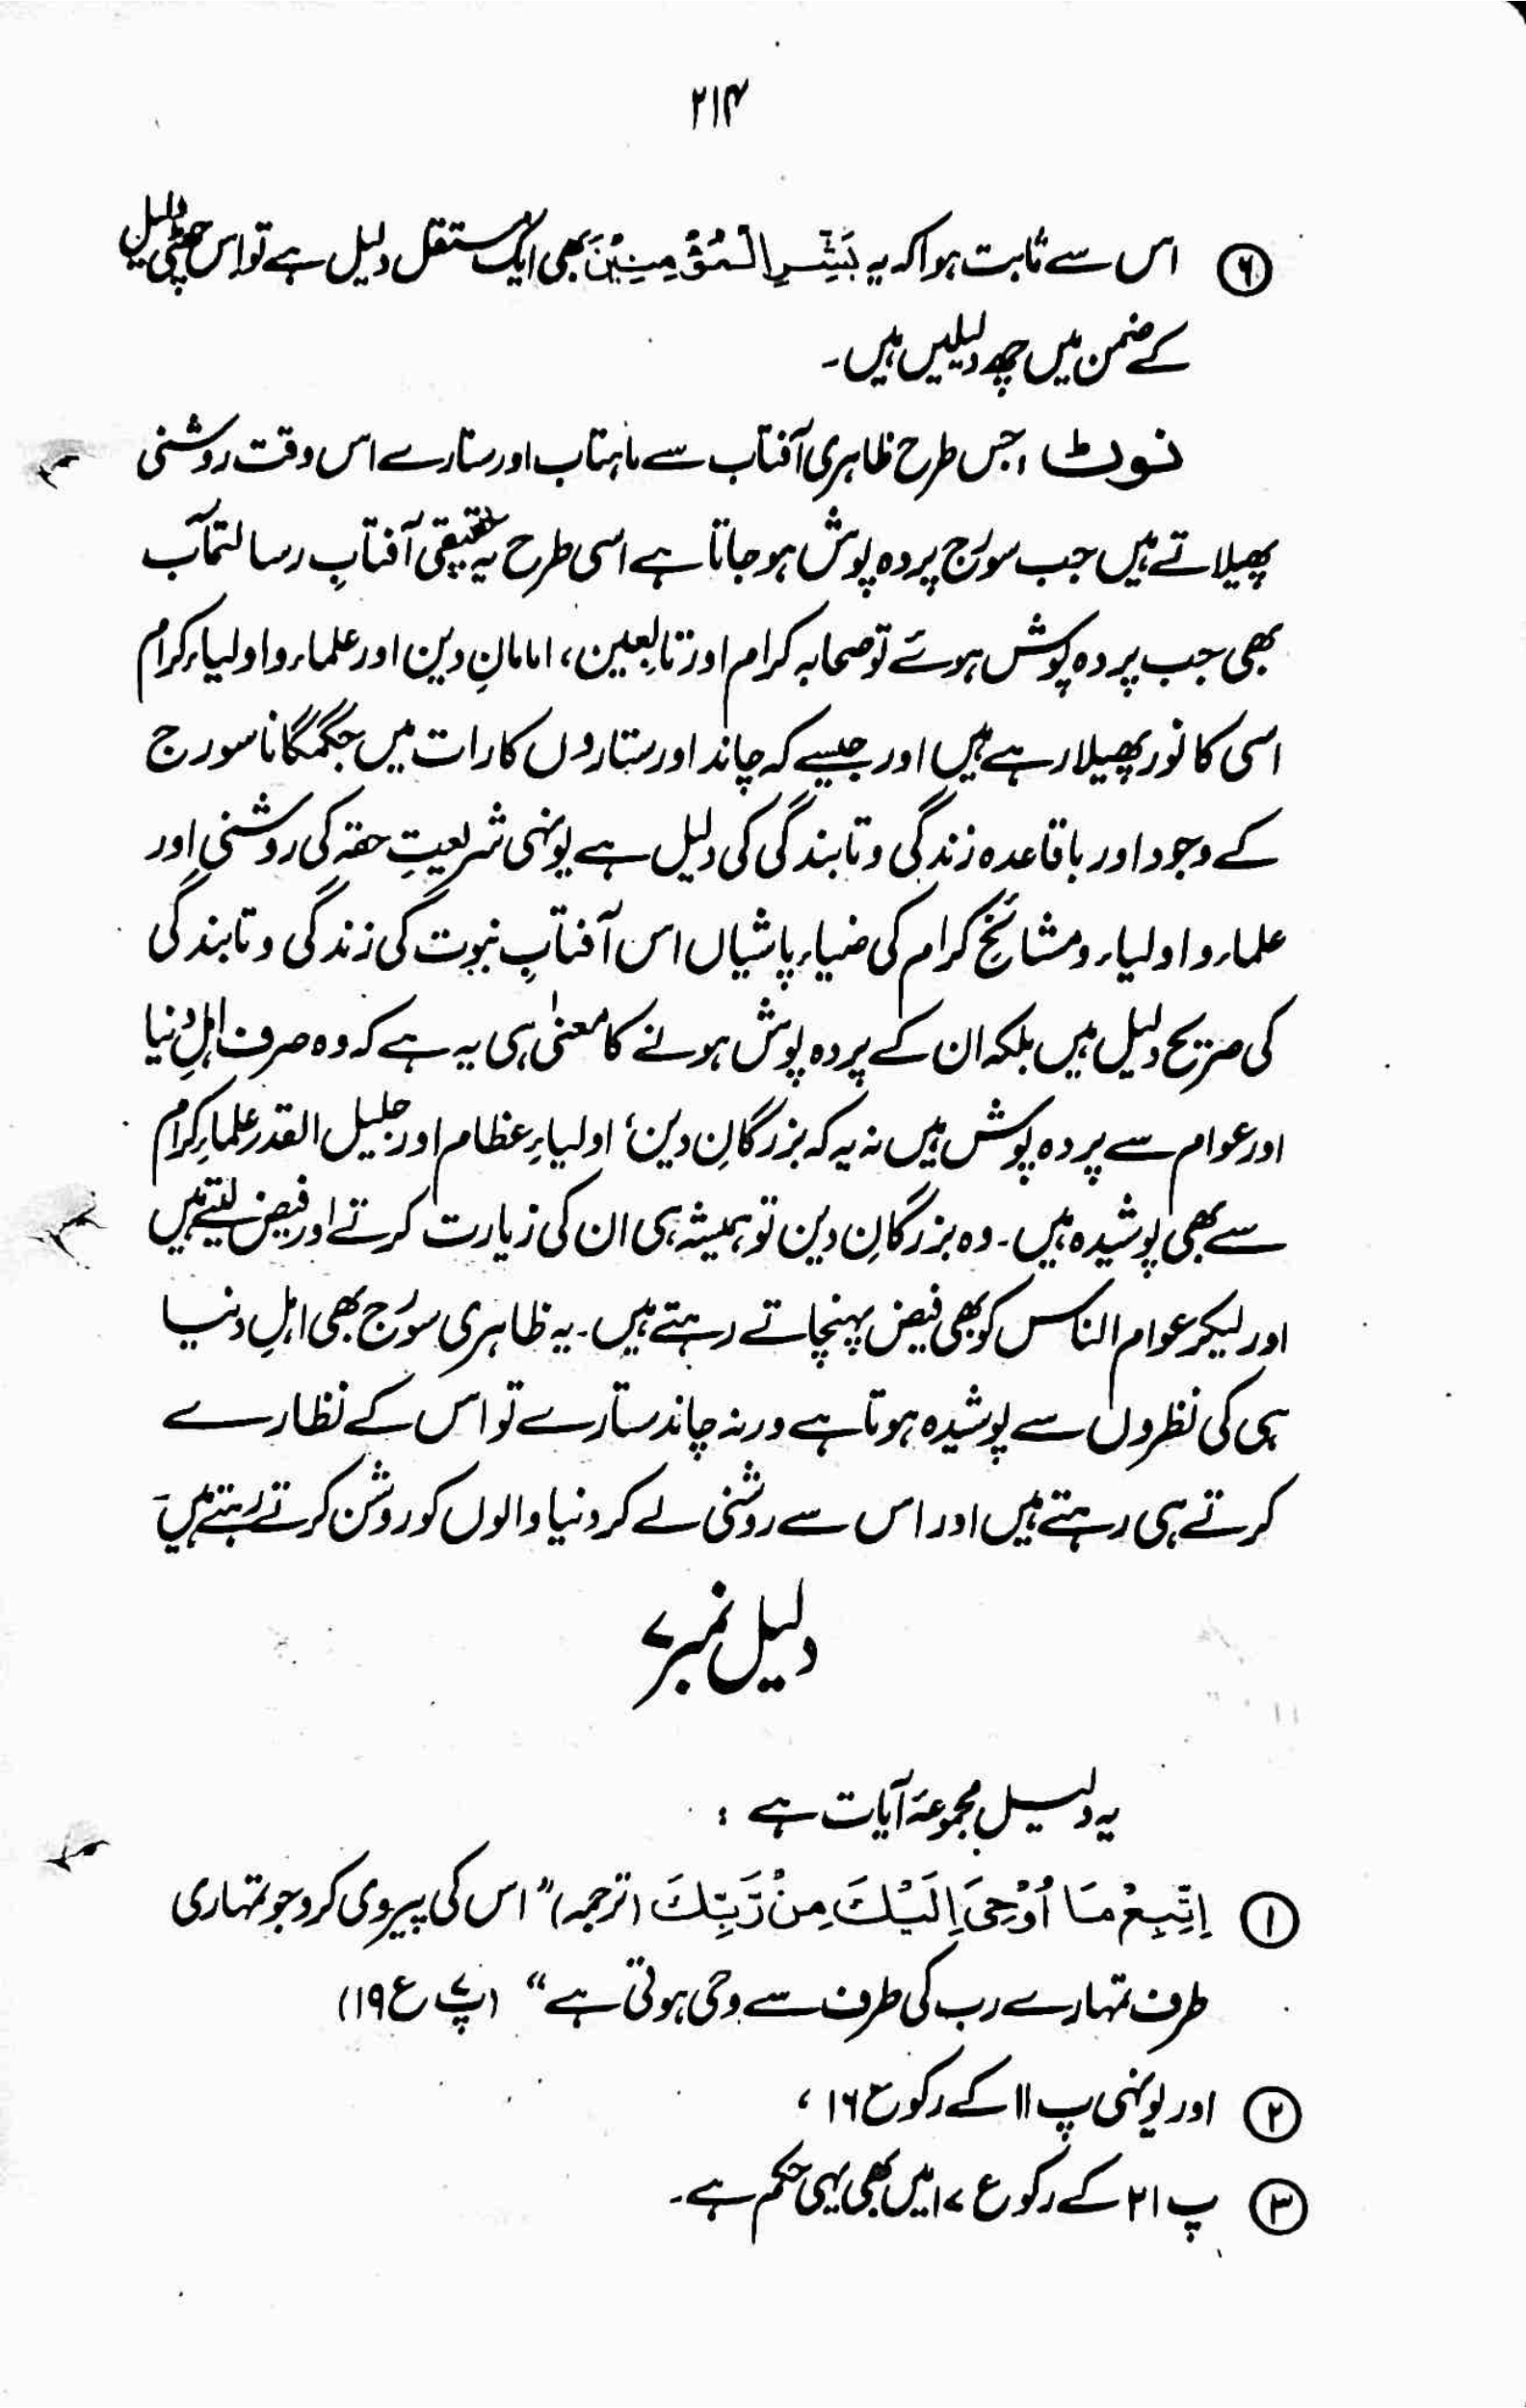 ۲۱۴
۶ اس سے ثابت ہوا کہ یہ بَشِّرِ الْمُؤْمِنِيْنَ بھی ایک مستقل دلیل ہے تو اس چھٹی دلیل
کے ضمن میں چھ دلیلیں ہیں۔
نوٹ: جس طرح ظاہری آفتاب سے ماہتاب اور ستارے اس وقت روشنی
پھیلاتے ہیں جب سورج پردہ پوش ہو جاتا ہے اسی طرح یہ حقیقی آفتابِ رسالتمآب
بھی جب پردہ پوش ہوئے تو صحابہ کرام اور تابعین، امامانِ دین اور علماء و اولیاء کرام
اسی کا نور پھیلا رہے ہیں اور جیسے کہ چاند اور ستاروں کا رات میں جگمگانا سورج
کے وجود اور باقاعدہ زندگی و تابندگی کی دلیل ہے یونہی شریعتِ حقہ کی روشنی اور
علماء و اولیاء و مشائخ کرام کی ضیاء پاشیاں اس آفتابِ نبوت کی زندگی و تابندگی
کی صریح دلیل ہیں بلکہ ان کے پردہ پوش ہونے کا معنیٰ ہی یہ ہے کہ وہ صرف اہلِ دنیا
اور عوام سے پردہ پوش ہیں نہ یہ کہ بزرگانِ دین، اولیاءِ عظام اور جلیل القدر علماءِ کرام
سے بھی پوشیدہ ہیں۔ وہ بزرگانِ دین تو ہمیشہ ہی ان کی زیارت کرتے اور فیض لیتے ہیں
اور لیکر عوام الناس کو بھی فیض پہنچاتے رہتے ہیں۔ یہ ظاہری سورج بھی اہلِ دنیا
ہی کی نظروں سے پوشیدہ ہوتا ہے ورنہ چاند ستارے تو اس کے نظارے
کرتے ہی رہتے ہیں اور اس سے روشنی لے کر دنیا والوں کو روشن کرتے رہتے ہیں۔
دلیل نمبر ۷
یہ دلیل مجموعۂ آیات ہے :
۱ اِتَّبِعْ مَا اُوْحِيَ اِلَيْكَ مِنْ رَّبِّكَ (ترجمہ) ”اس کی پیروی کرو جو تمہاری
طرف تمہارے رب کی طرف سے وحی ہوتی ہے“ (پ۷ ع۱۹)
۲ اور یونہی پ ۱۱ کے رکوع ۱۶،
۳ پ ۲۱ کے رکوع ۱۷ میں بھی یہی حکم ہے۔